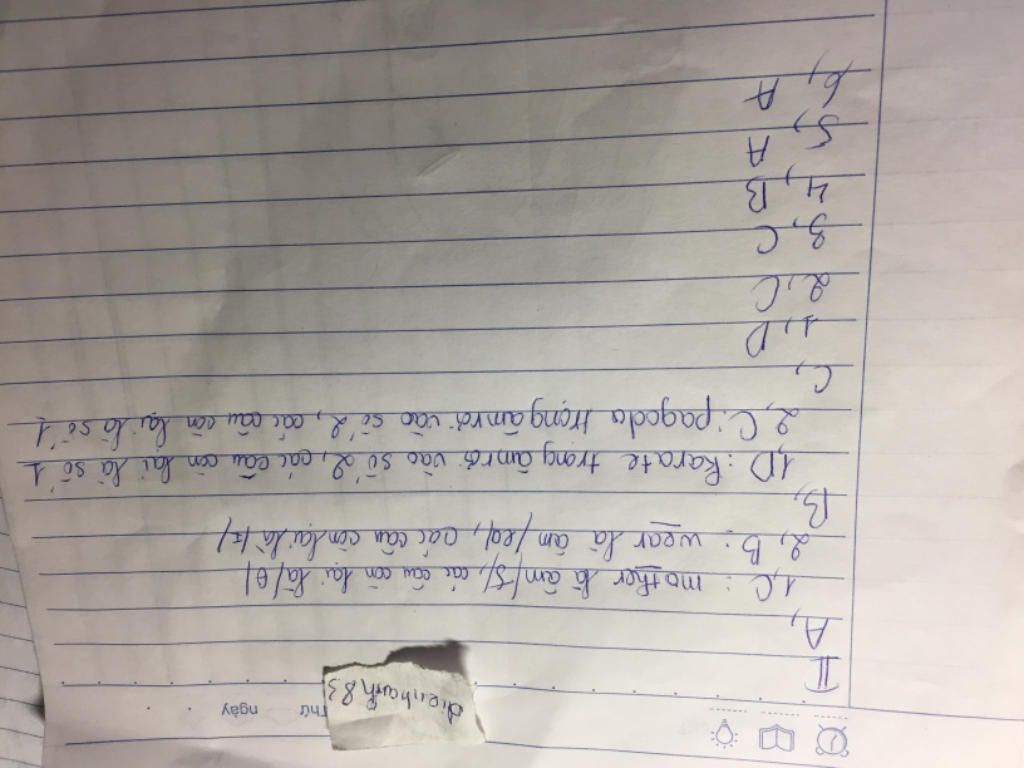 Thứ ngày
dienhanh83
II
A,
1, C : mother là âm /ð/, các câu còn lại là /θ/
2, B : wear là âm /eə/, các câu còn lại là /ɪə/
B,
1, D : karate trọng âm rơi vào số 2, các câu còn lại là số 1
2, C : pagoda trọng âm rơi vào số 2, các câu còn lại là số 1
C,
1, D
2, C
3, C
4, B
5, A
6, A